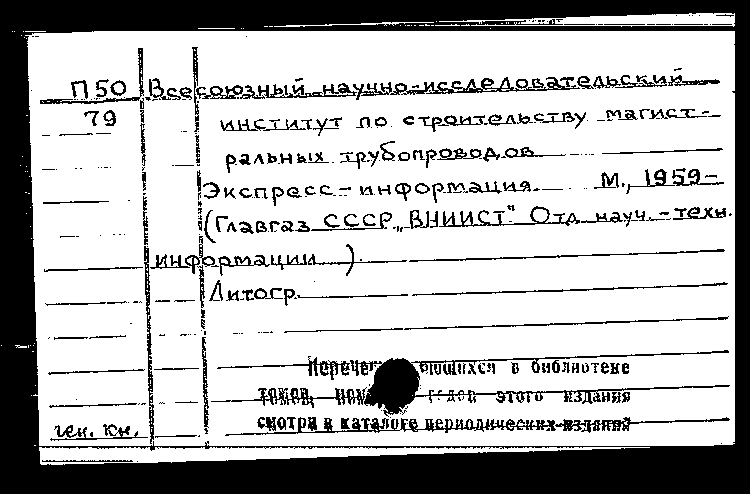 П50 Всесоюзный научно-исследовательский
79 институт по строительству магист-
ральных трубопроводов
Экспресс-информация. М., 1959-
(Главгаз СССР „ВНИИСТ" Отд науч.-техн.
информации ).
Литогр.
в библиотеке
томов, этого издания
смотри в каталоге периодических изданий
ген. кн.